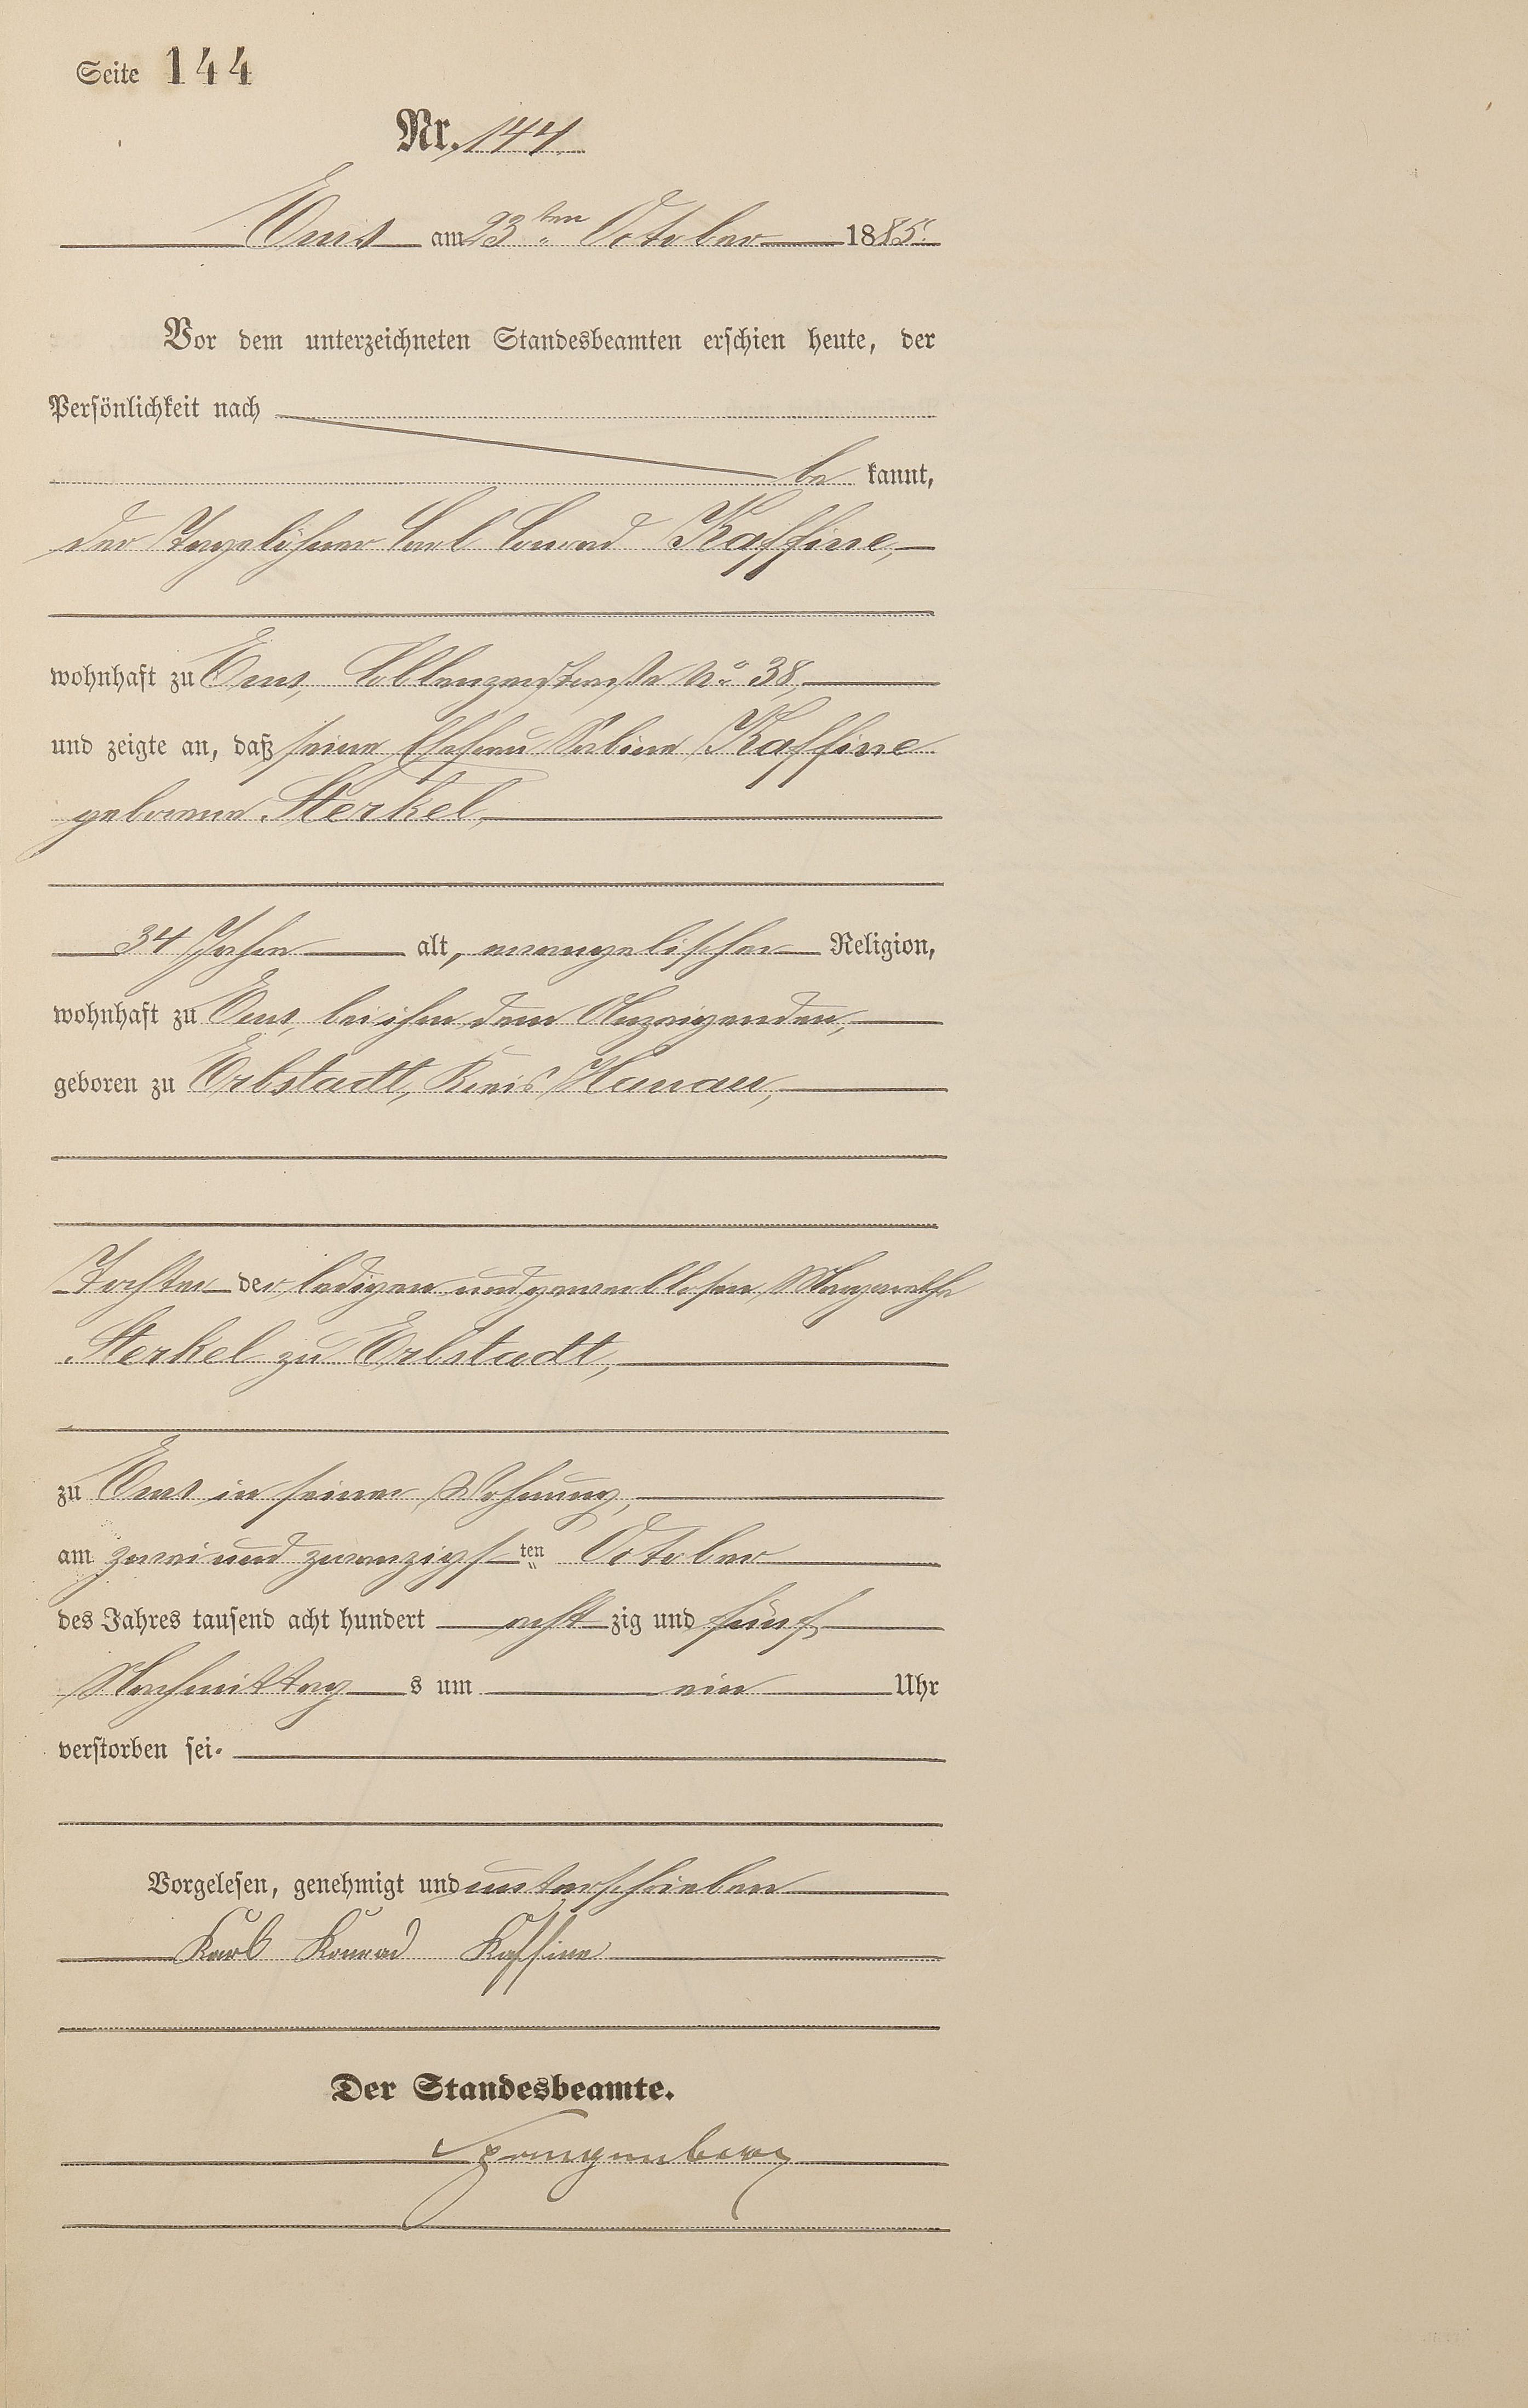 Seite 144
Nr. 144
Ems am 23ten October 1885.
Vor dem unterzeichneten Standesbeamten erschien heute, der
Persönlichkeit nach
be kannt,
der Tagelöhner Carl Conrad Kaffine,
wohnhaft zu Ems, Coblenzerstraße No 38,
und zeigte an, daß seine Ehefrau Sabine Kaffine
geborene Sterkel,
34 Jahre alt, evangelischer Religion,
wohnhaft zu Ems, bei ihm dem Anzeigenden,
geboren zu Erbstadt, Kreis Hanau,
Tochter der ledigen und gewerblosen Margarethe
Sterkel zu Erbstadt,
zu Ems in seiner Wohnung,
am zweiundzwanzigsten October
des Jahres tausend acht hundert acht zig und fünf,
Nachmittag s um ein Uhr
verstorben sei.
Vorgelesen, genehmigt und unterschrieben
Karl Konrad Kaffine
Der Standesbeamte.
Spangenberg